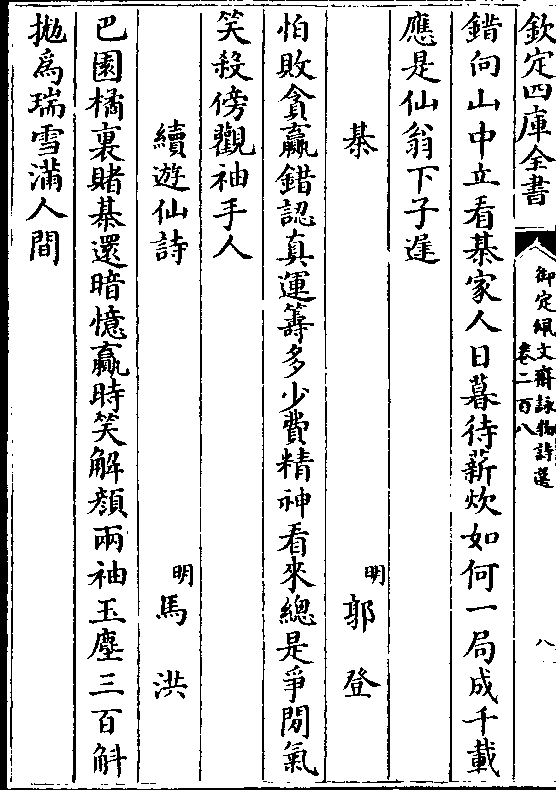 欽定四庫全書
御定佩文齋詠物詩選
卷二百八
八
錯向山中立看棊家人日暮待薪炊如何一局成千載
應是仙翁下子遲
棊
明 郭登
怕敗貪贏錯認真運籌多少費精神看來總是爭閒氣
笑殺傍觀袖手人
續遊仙詩
明 馬洪
巴園橘裏賭棊還暗憶贏時笑解顔兩袖玉塵三百斛
拋爲瑞雪滿人間